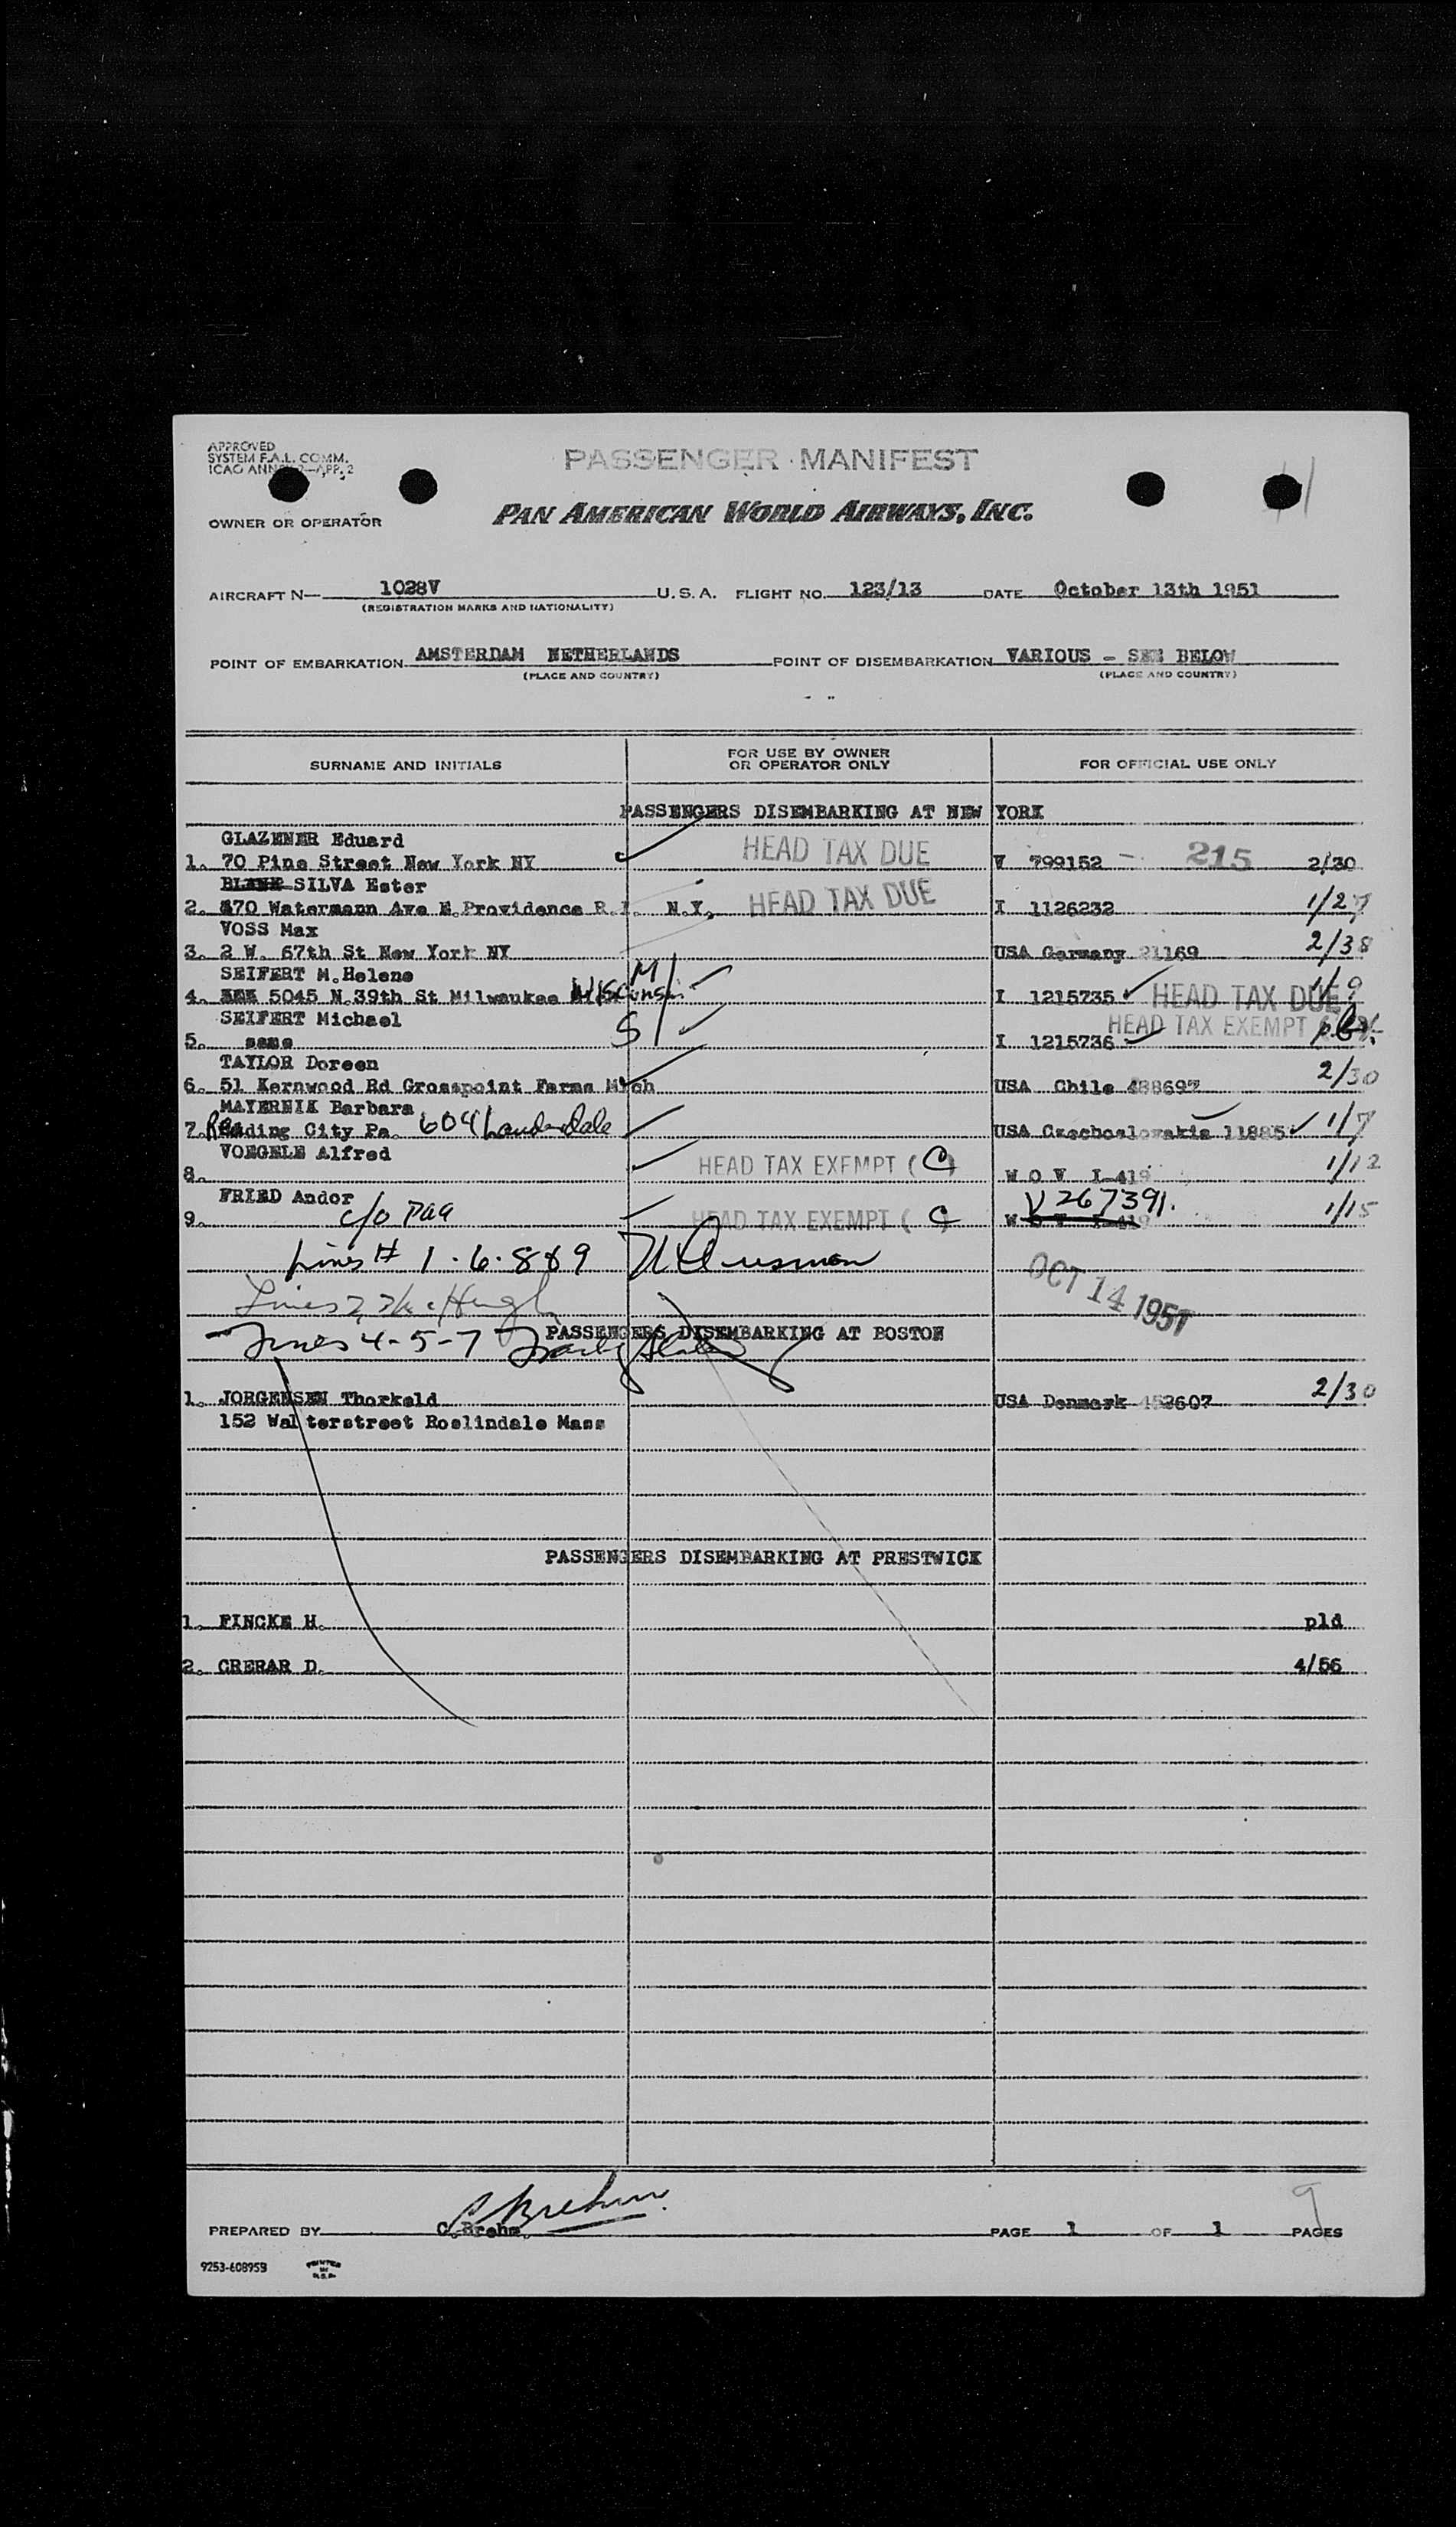 APPROVED
SYSTEM F.A.L. COMM.
ICAO ANNEX 2—APP. 2
PASSENGER MANIFEST
OWNER OR OPERATOR
PAN AMERICAN WORLD AIRWAYS, INC.
AIRCRAFT N— 1028V U.S.A. FLIGHT NO. 123/13 DATE October 13th 1951
(REGISTRATION MARKS AND NATIONALITY)
POINT OF EMBARKATION AMSTERDAM NETHERLANDS POINT OF DISEMBARKATION VARIOUS - SEE BELOW
(PLACE AND COUNTRY) (PLACE AND COUNTRY)
SURNAME AND INITIALS FOR USE BY OWNER OR OPERATOR ONLY FOR OFFICIAL USE ONLY
PASSENGERS DISEMBARKING AT NEW YORK
GLAZENER Eduard
1. 70 Pine Street New York NY HEAD TAX DUE V 799152 - 215 2/30
SILVA Ester
2. 870 Watermann Ave E.Providence R.I. N.Y. HEAD TAX DUE I 1126232 1/27
VOSS Max
3. 2 W. 67th St New York NY USA Germany 21169 2/38
SEIFERT M.Helene
4. 5045 N 39th St Milwaukee Wisconsin M/ I 1215735 HEAD TAX DUE 1/9
SEIFERT Michael
5. same S/ I 1215736 HEAD TAX EXEMPT
TAYLOR Doreen
6. 51 Kernwood Rd Grosspoint Farms Mich USA Chile 488697 2/30
MAYERNIK Barbara
7. Reading City Pa. 604 Lauderdale USA Czechoslovakia 11885 1/7
VOEGELE Alfred
8. HEAD TAX EXEMPT (C) W O V I-419 1/12
FRIED Andor
9. c/o PAA HEAD TAX EXEMPT (C) W O V I-419 V 267391. 1/15
Lines # 1-6-8&9
OCT 14 1951
Lines 2, 3
PASSENGERS DISEMBARKING AT BOSTON
Lines 4-5-7
1. JORGENSEN Thorkeld USA Denmark 452607 2/30
152 Walterstreet Roslindale Mass
PASSENGERS DISEMBARKING AT PRESTWICK
1. FINCKE H. pld
2. CRERAR D. 4/56
9
PREPARED BY C.Brehm. PAGE 1 OF 1 PAGES
9253-608959 PRINTED IN U.S.A.